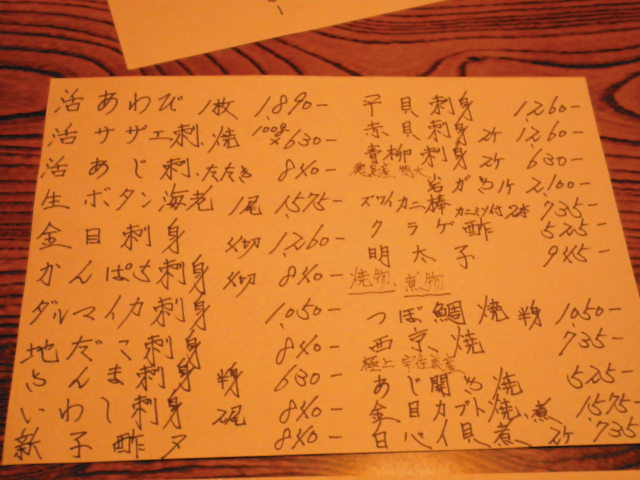 活あわび 1枚 1,890-
活サザエ刺.焼 100g× 630-
活あじ刺.たたき 840-
生ボタン海老 1尾 1,575-
金目刺身 4切 1,260-
かんぱち刺身 4切 840-
ダルマイカ刺身 1,050-
地だこ刺身 840-
さんま刺身 半身 630-
いわし刺身 2尾 840-
新子酢〆 840-
平貝刺身 1,260-
赤貝刺身 2ケ 1,260-
青柳刺身 2ケ 630-
岩がき1ケ 2,100-
ズワイカニ棒 カニミソ付2本 735-
クラゲ酢 525-
明太子 945-
焼物、煮物
つぼ鯛焼 半身 1,050-
西京焼 735-
極上
あじ開き焼 525-
金目カブト焼、煮 1,575-
白バイ貝煮 2ケ 735-